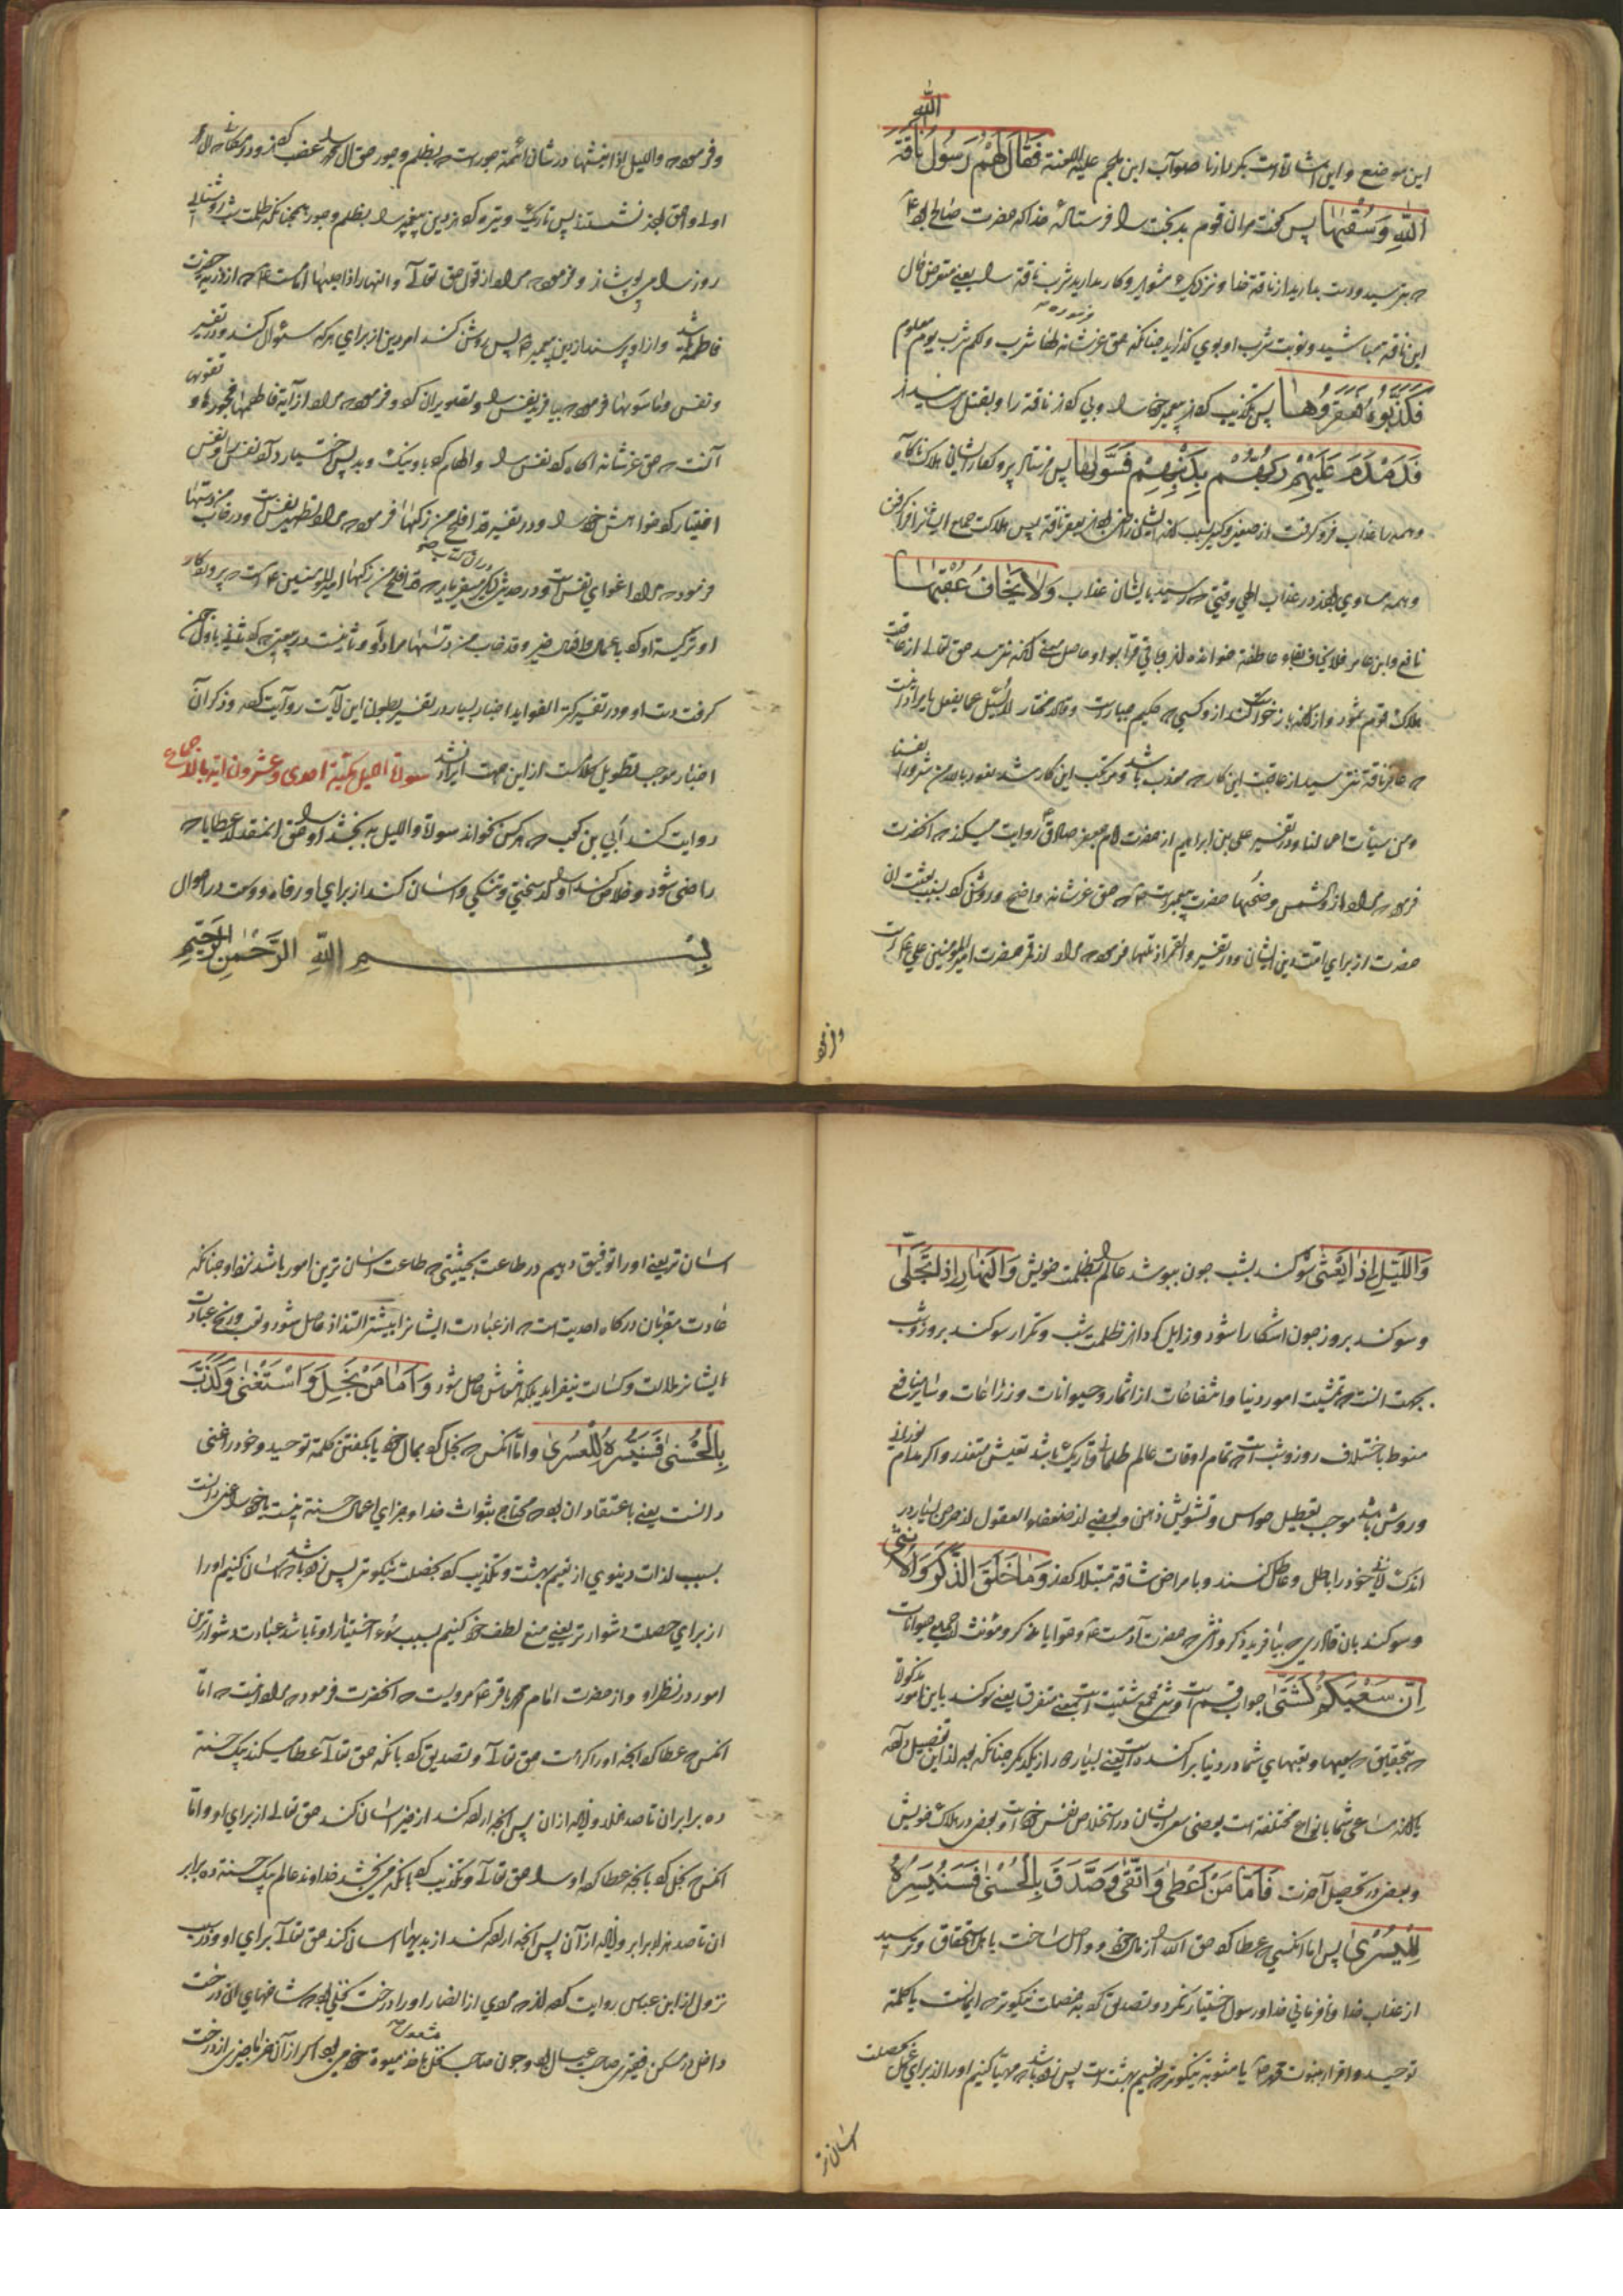 این موضع و این اشارتست بکردار ناصواب ابن ملجم علیه اللعنة فَقَالَ لَهُمْ رَسُولُ اللهِ نَاقَةَ
اللهِ وَسُقْيٰهَا پس گفت مران قوم بدبخت را فرستادهٔ خدا که حضرت صالح بود
که بترسید و دست بدارید از ناقة خدا و نزدیک مشوید و کار مدارید شرب ناقة را یعنی متعرض حال
این ناقة مباشید و نوبت شرب او بوی گذارید چنانکه حق عزشانه فرموده لها شرب و لکم شرب یوم معلوم
فَكَذَّبُوهُ فَعَقَرُوهَا پس تکذیب کردند پیغمبر خدا را و پی کردند ناقة را و بقتل رسانیدند
فَدَمْدَمَ عَلَيْهِمْ رَبُّهُمْ بِذَنْبِهِمْ فَسَوّٰيهَا پس فرستاد پروردگار ایشان هلاک ناگاه
و همه را عذاب فرو گرفت از صغیر و کبیر بسبب گناه ایشان
و همه مساوی بودند در عذاب الهی وقتی که رسید بایشان عذاب وَلَا يَخَافُ عُقْبٰهَا
نافع و ابن عامر فلا یخاف بفاء عاطفة خوانده اند و باقی قرا بواو
هلاک قوم ثمود و از گناه باز خواست کند از وی کسی که حکیم
که عاقر ناقة نترسید از عاقبت این کار که معذب باشد و مرتکب این کار شد نعوذ بالله من شرور انفسنا
و من سیئات اعمالنا و در تفسیر علی بن ابراهیم از حضرت امام جعفر صادق روایت میکند که آنحضرت
فرموده مراد از والشمس وضحیها حضرت پیغمبر است که حق عزشانه واضح و روشن کرد بسبب بعثت آن
حضرت از برای امت دین ایشان و در تفسیر والقمر اذا تلیها فرموده مراد از قمر حضرت امیر المؤمنین علی است
وفرموده
وفرموده والیل اذا یغشیها در شان ائمه جور است که بظلم و جور حق آل محمد را غصب کردند و در مکانی که آل
اولی و احق بودند نشستند پس تاریک و تیره کردند دین پیغمبر را بظلم و جور همچنانکه ظلمت شب روشنایی
روز را می پوشاند و فرموده مراد از قول حق تعالی والنهار اذا جلیها امامست که از ذریه حضرت
فاطمه باشد و از او پرسند از دین پیغمبر پس روشن کند امر دین از برای هر که سئوال کند و در تفسیر
ونفس وماسویها فرموده بیافرید نفس را و تصویر آن کرد و فرموده مراد از آیة فالهمها فجورها و تقویها
آنست که حق عزشانه آگاه کرد نفس را و الهام کرد باو نیک و بد پس اختیار داد نفس را و نفس
اختیار کرد خواهش خود را و در تفسیر قد افلح من زکیها فرموده مراد تطهیر نفس است و در و قد خاب من دسیها
فرموده مراد اغوای نفس است و در حدیث دیگر میفرماید که قد افلح من زکیها امیر المؤمنین است که پروردگار
او تزکیه او کرد
گرفت دست او و در تفسیر کنز الفواید اخبار بسیار در تفسیر بطون این آیات روایت کرده و ذکر آن
اخبار موجب تطویل کلام است از این جهت ایراد نشد سورة اللیل مکیة احدی وعشرون ایة بالاجماع
روایت کند ابی بن کعب که هر کس بخواند سورة واللیل به بخشد او را حق آنمقدار عطایا که
راضی شود و خلاص کند او را از سختی و تنگی و آسان کند از برای او رفاه و وسعت در احوال
بِسْمِ اللهِ الرَّحْمٰنِ الرَّحِيمِ
وَاللَّيْلِ اِذَا يَغْشٰى سوگند بشب چون بپوشد عالم را بظلمت خویش وَالنَّهَارِ اِذَا تَجَلّٰى
و سوگند بروز چون آشکارا شود و زایل گرداند ظلمت شب و تکرار سوگند بروز و شب
بجهت آنست که تمشیت امور دنیا و انتفاعات از اثمار و حیوانات و زراعات و سایر منافع
منوط باختلاف روز و شب است که تمام اوقات عالم ظلمانی و تاریک باشد تعیش متعذر و اگر مدام نورانی
و روشن باشد موجب تعطیل حواس و تشویش ذهن و بعضی از ضعفاء العقول از حرص بسیار در
اندک لذت خود را باطل و عاطل کنند و بامراض شاقه مبتلا گردند وَمَا خَلَقَ الذَّكَرَ وَالْاُنْثٰى
و سوگند بآن قادری که بیافرید ذکر و انثی که حضرت آدمست و حوا یا مذکر و مؤنث از جمیع حیوانات
اِنَّ سَعْيَكُمْ لَشَتّٰى جواب قسم است و شتی جمع شتیت است بمعنی متفرق یعنی سوگند باین امور مذکورة
که بتحقیق که سعیها و تعبهای شما در دنیا پراکنده است
یا آنکه مساعی شما بانواع مختلفه است بعضی سعی ایشان در استخلاص نفس خود است و بعضی در هلاک خویش
و بعضی در تحصیل آخرت فَاَمَّا مَنْ اَعْطٰى وَاتَّقٰى وَصَدَّقَ بِالْحُسْنٰى فَسَنُيَسِّرُهُ
لِلْيُسْرٰى پس اما آنکسی که عطا کرد حق الله را از مال خود و واصل ساخت باهل استحقاق و ترسید
از عذاب خدا و نافرمانی خدا و رسول اختیار نکرد و تصدیق کرد بخصلت نیکوتر که ایمانست یا کلمة
توحید و اقرار بنبوت محمد یا مثوبة نیکوتر که نعیم بهشت است پس زود باشد که مهیا کنیم او را از برای خصلت
آسان تر
آسان تر یعنی او را توفیق دهیم در طاعت بحیثیتی که طاعت آسان ترین امور باشد نزد او چنانکه
عادت مقربان درگاه احدیت است که از عبادت ایشانرا بیشتر التذاذ حاصل شود و تعب و رنج عبادت
ایشانرا ملالت و کسالت نیفزاید بلکه خوش حاصل شود وَاَمَّا مَنْ بَخِلَ وَاسْتَغْنٰى وَكَذَّبَ
بِالْحُسْنٰى فَسَنُيَسِّرُهُ لِلْعُسْرٰى و اما آنکس که بخل کرد بمال خود یا بگفتن کلمة توحید و خود را غنی
دانست یعنی باعتقاد آن بود که محتاج بثواب خدا و جزای اعمال حسنة نیست یا خود را غنی دانست
بسبب لذات دنیوی از نعیم بهشت و تکذیب کرد بخصلت نیکوتر پس زود باشد که آسان کنیم او را
از برای خصلت دشوارتر یعنی منع لطف خود کنیم بسبب سوء اختیار او تا باشد عبادت دشوارترین
امور در نظر او و از حضرت امام محمد باقر مرویست که آنحضرت فرموده مراد اینست که اما
آنکس که عطا کرد آنچه او را کرامت حق تعالی و تصدیق کرد بآنکه حق تعالی عطا میکند بیک حسنة
ده برابر آن تا صد هزار و زیاده از آن پس آنچه اراده کند از خیر آسان کند حق تعالی از برای او و اما
آنکس که بخل کرد بآنچه عطا کرد او را حق تعالی و تکذیب کرد بآنکه می بخشد خداوند عالم بیک حسنة ده برابر
آن تا صد هزار برابر و زیاده از آن پس آنچه اراده کند از بدیها آسان کند حق تعالی برای او و در سبب
نزول از ابن عباس روایت کرده اند که مردی از انصار او را درخت نخلی بود که شاخهای آن درخت
داخل در مسکن فقیری صاحب عیال بود و چون صاحب نخل